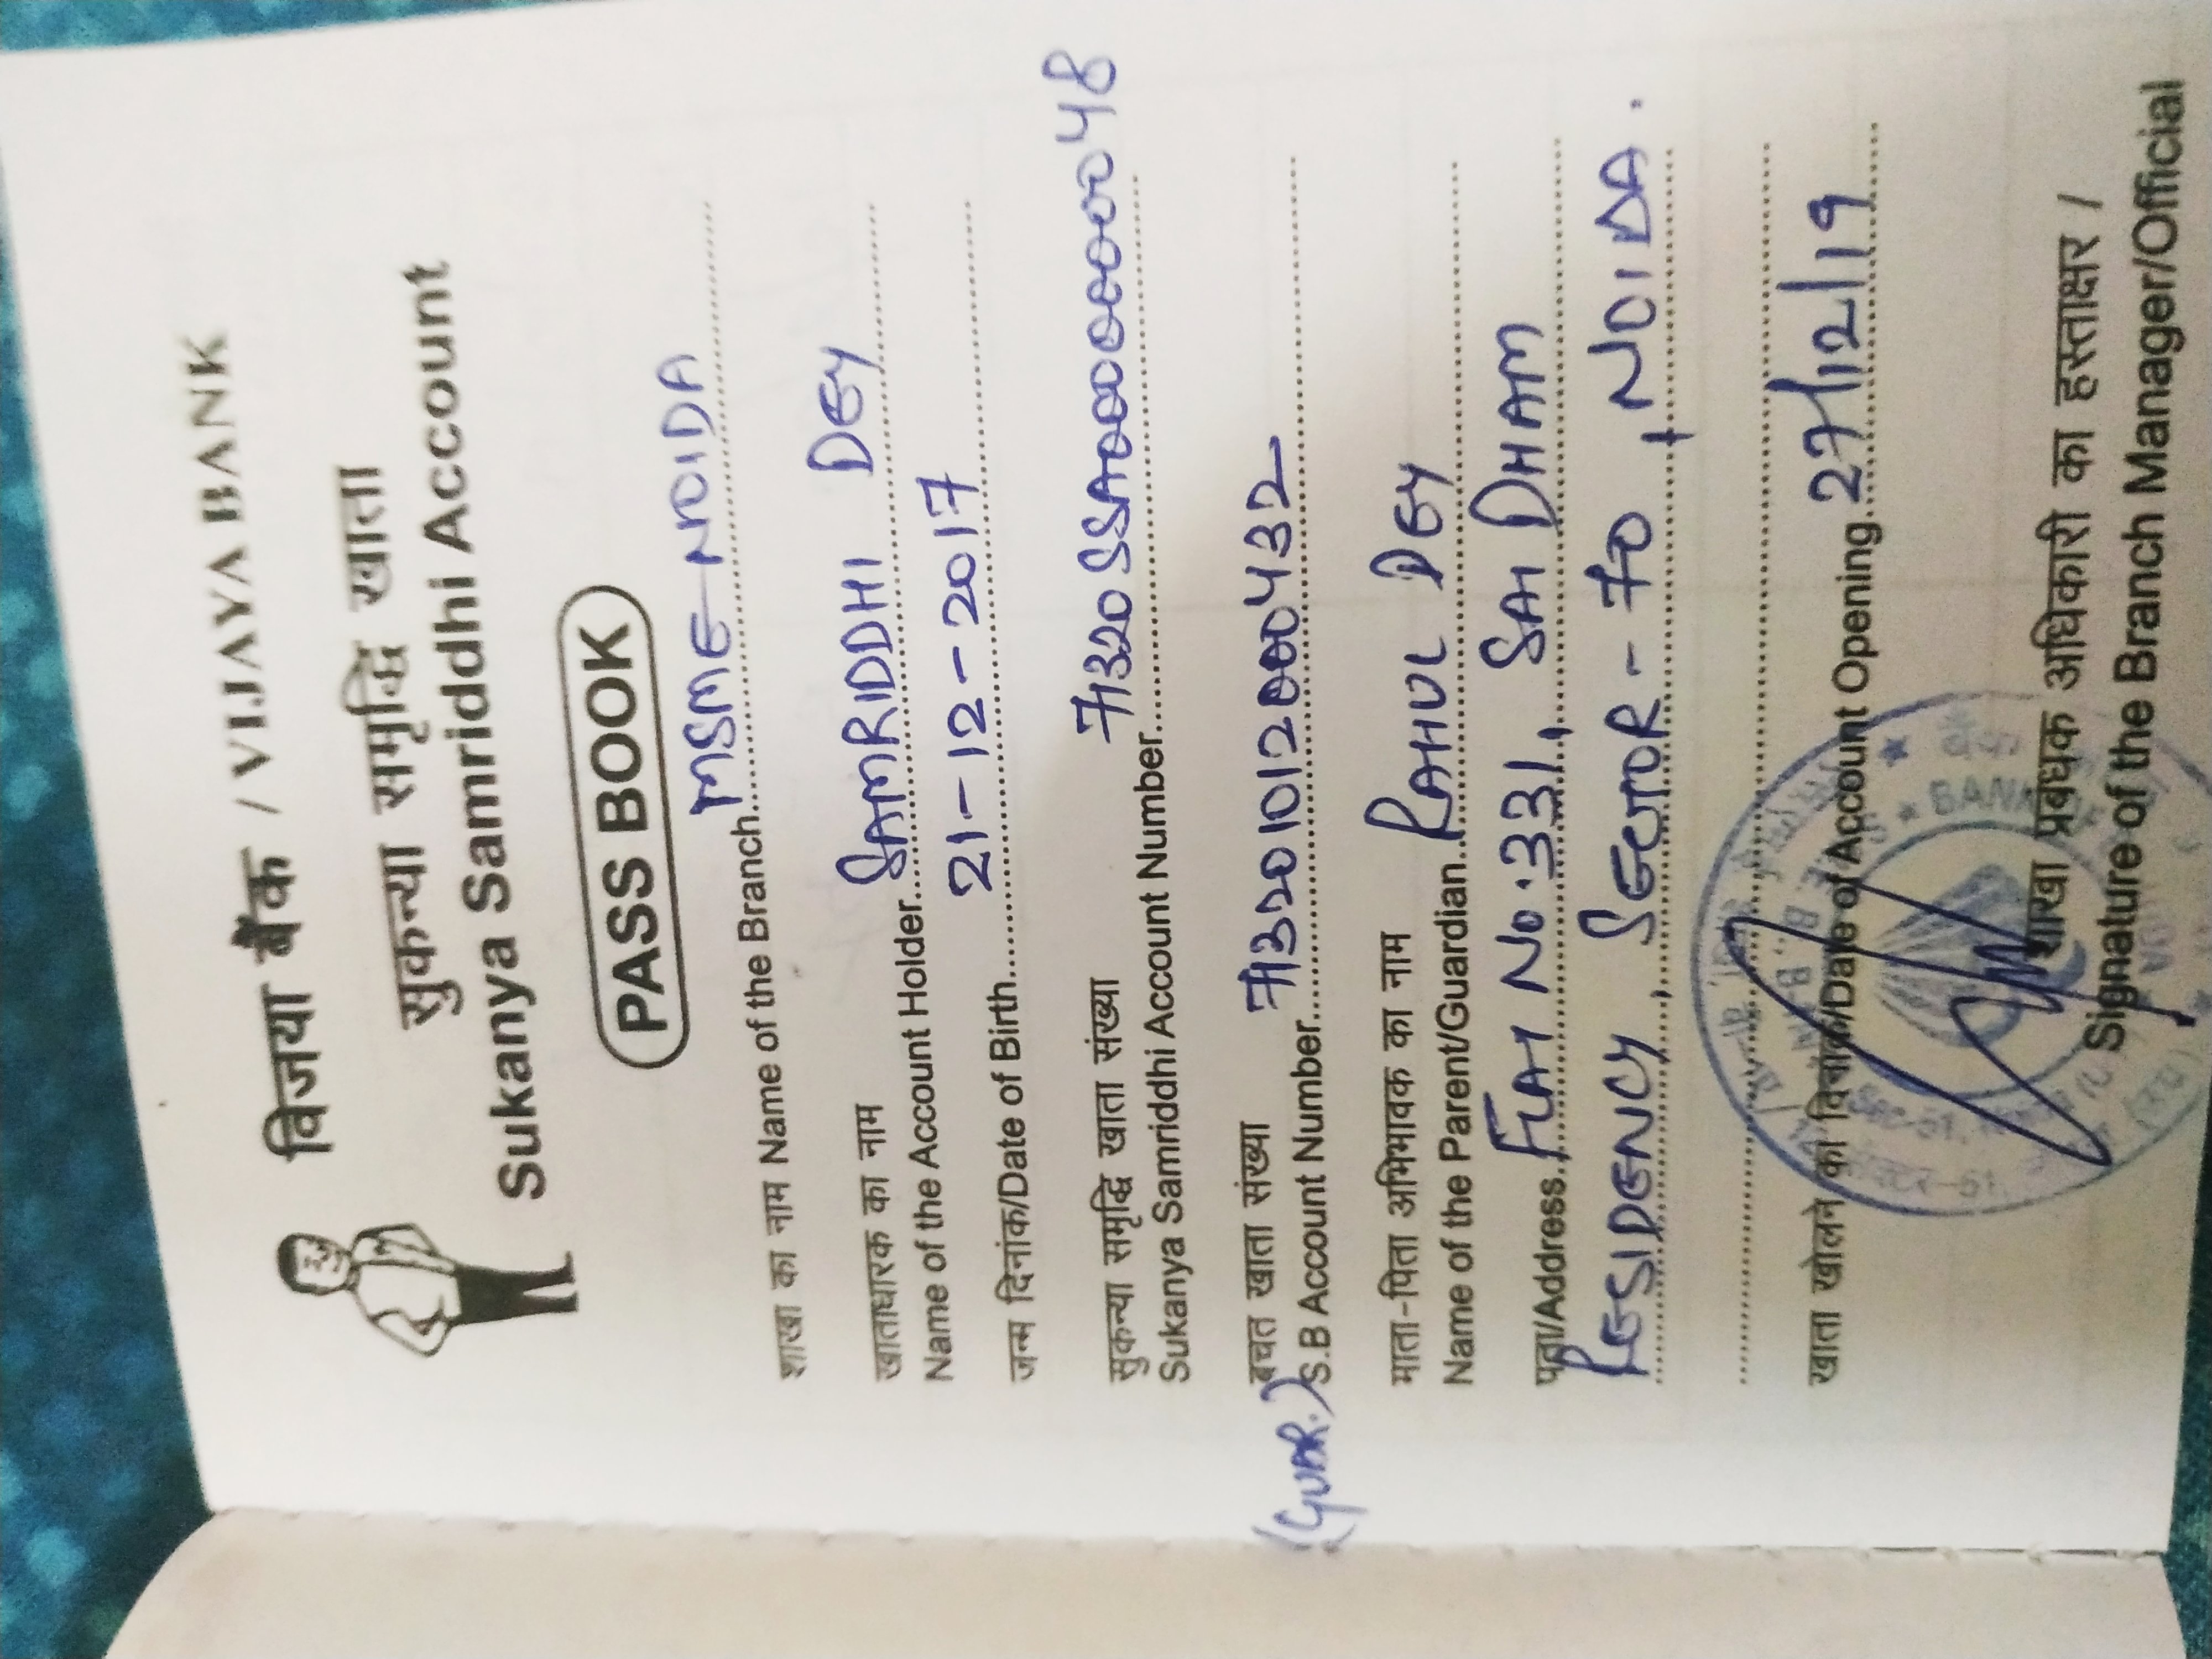 विजया बैंक / VIJAYA BANK
सुकन्या समृद्धि खाता
Sukanya Samriddhi Account
PASS BOOK
शाखा का नाम Name of the Branch MSME NOIDA
खाताधारक का नाम
Name of the Account Holder SAMRIDDHI DEY
जन्म दिनांक/Date of Birth 21-12-2017
सुकन्या समृद्धि खाता संख्या
Sukanya Samriddhi Account Number 71320SSA
बचत खाता संख्या
(GUAR.) S.B Account Number 713201012000432
माता-पिता अभिभावक का नाम
Name of the Parent/Guardian RAHUL DEY
पता/Address FLAT NO.331, SAI DHAM
RESIDENCY, SECTOR-70, NOIDA.
खाता खोलने का दिनांक/Date of Account Opening 27/12/19
BANK
शाखा प्रबंधक अधिकारी का हस्ताक्षर /
Signature of the Branch Manager/Official